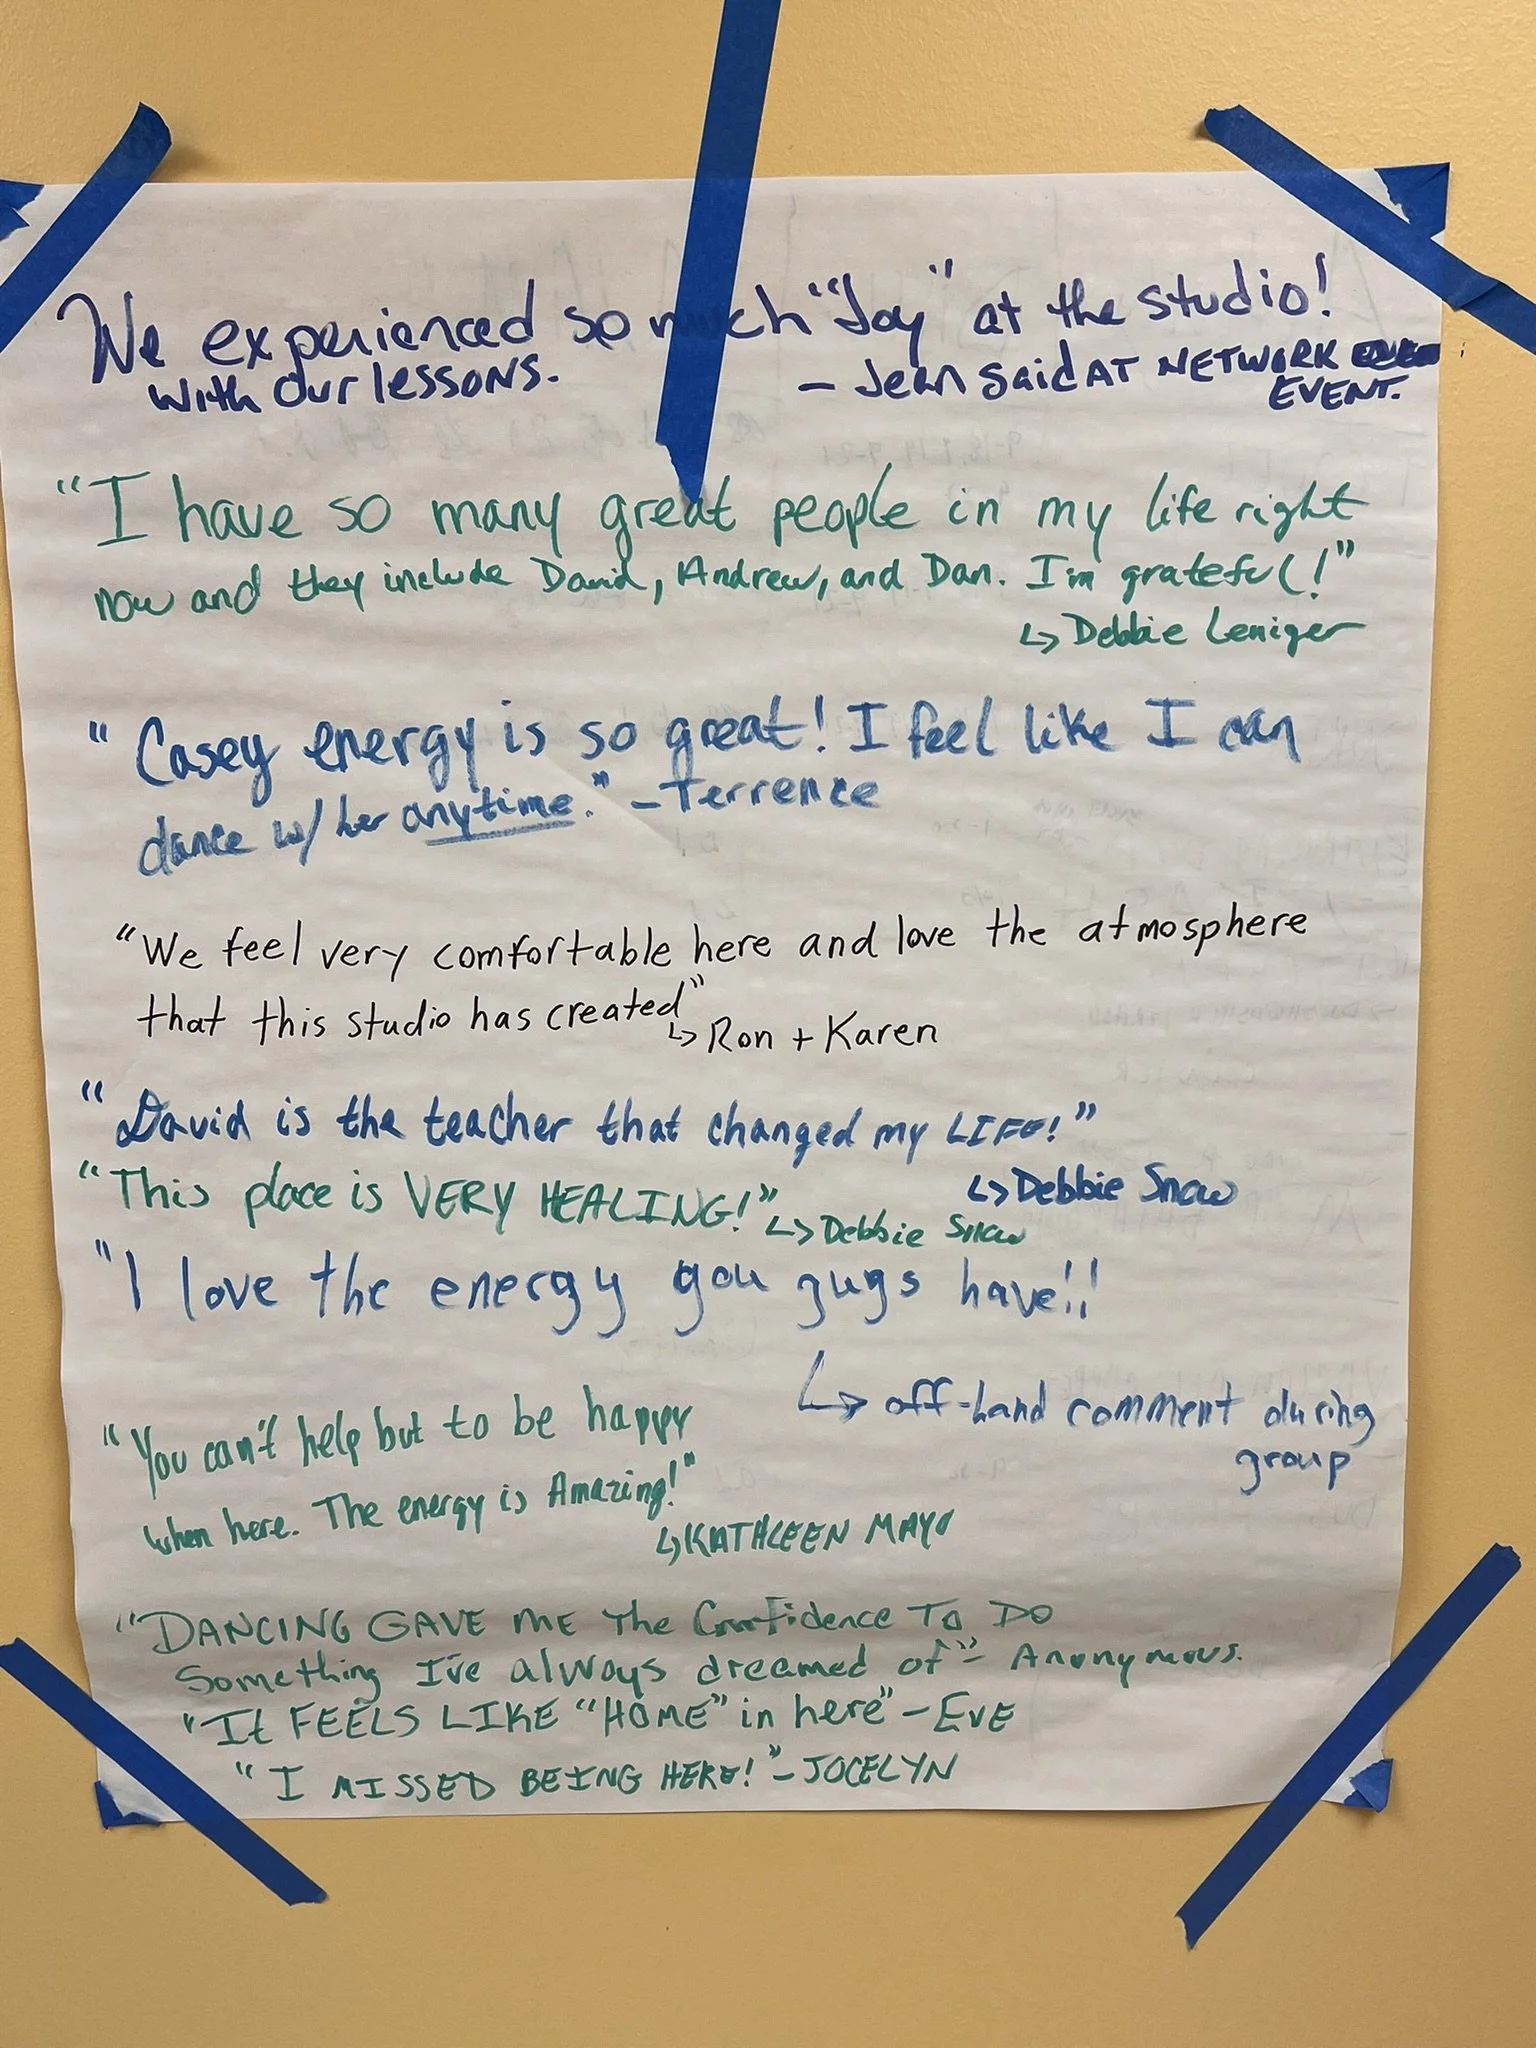 We experienced so much "Joy" at the studio!
with our lessons.
- Jean said AT NETWORK
EVENT.
"I have so many great people in my life right
now and they include David, Andrew, and Dan. I'm grateful!"
↳ Debbie Leniger
"Casey energy is so great! I feel like I can
dance w/ her anytime." - Terrence
"We feel very comfortable here and love the atmosphere
that this studio has created"
↳ Ron + Karen
"David is the teacher that changed my LIFE!"
↳ Debbie Snow
"This place is VERY HEALING!"
↳ Debbie Snow
"I love the energy you guys have!!
↳ off-hand comment during
group
"You can't help but to be happy
when here. The energy is Amazing!"
↳ KATHLEEN MAYO
"DANCING GAVE ME The Confidence TO DO
Something I've always dreamed of" - Anonymous.
"It FEELS LIKE "HOME" in here" - EVE
"I MISSED BEING HERE!" - JOCELYN